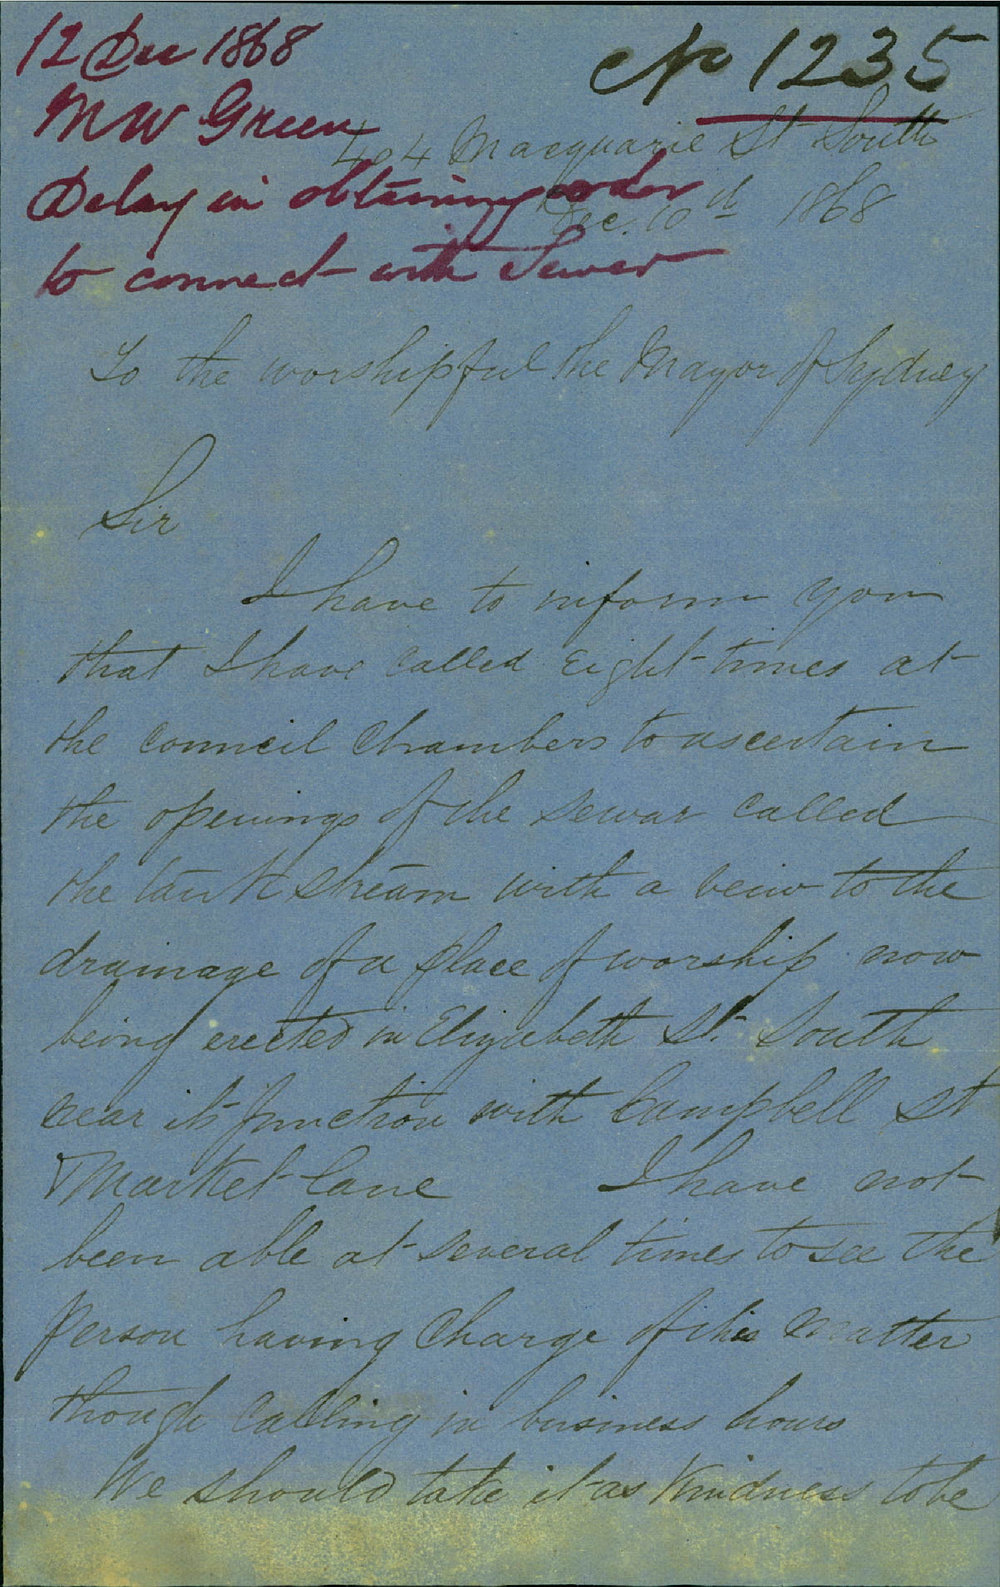 12 Dec 1868
No 1235
M W Green
404 Macquarie St South
Delay in obtaining order
Dec. 10th 1868
to connect with Sewer
To the worshipful the Mayor of Sydney
Sir
I have to inform you
that I have called Eight times at
the council Chambers to ascertain
the openings of the sewar called
the tank stream with a veiw to the
drainage of a place of worship now
being erected in Elizabeth St. South
near its junction with Campbell St
Market lane I have not
been able at several times to see the
person having charge of this matter
though calling in business hours
We should take it as Kindness to be